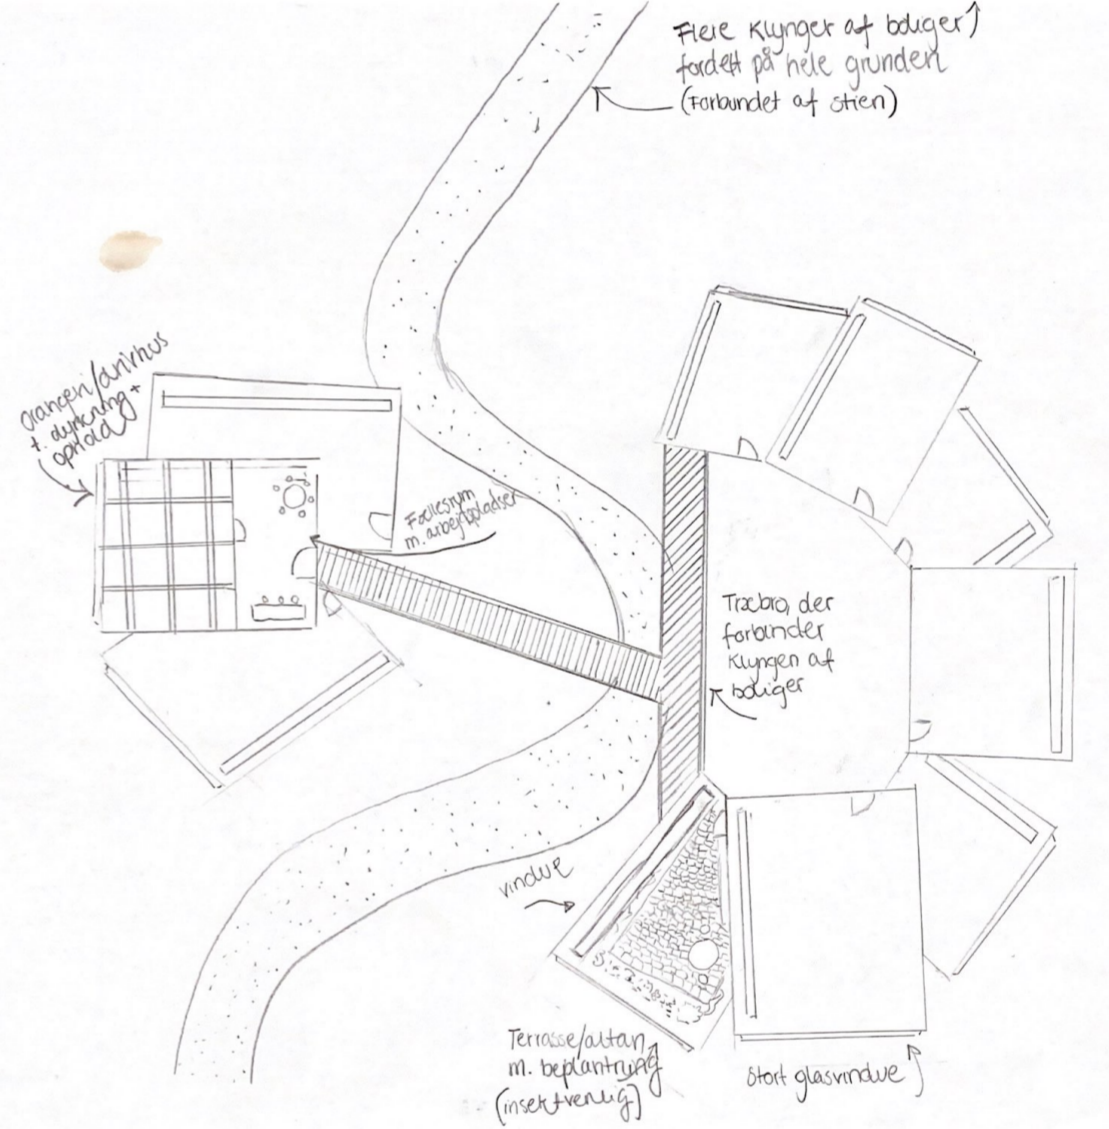 Flere klynger af boliger
fordelt på hele grunden
(Forbundet af stien)
Orangeri/drivhus
t. dyrkning +
ophold
Fællesrum
m. arbejdspladser
Træbro, der
forbinder
klyngen af
boliger
vindue
Terrasse/altan
m. beplantning
(insektvenlig)
Stort glasvindue